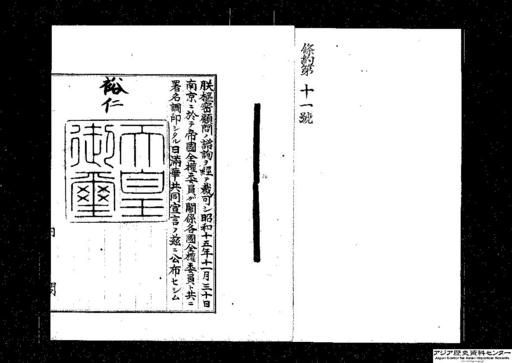 條約第十一號
朕樞密顧問ノ諮詢ヲ經テ裁可シ昭和十五年十一月三十日
南京ニ於テ帝國全權委員ガ關係各國全權委員ト共ニ
署名調印シタル日滿華共同宣言ヲ茲ニ公布セシム
裕仁
天皇
御璽
内
閣
アジア歴史資料センター
Japan Center for Asian Historical Records